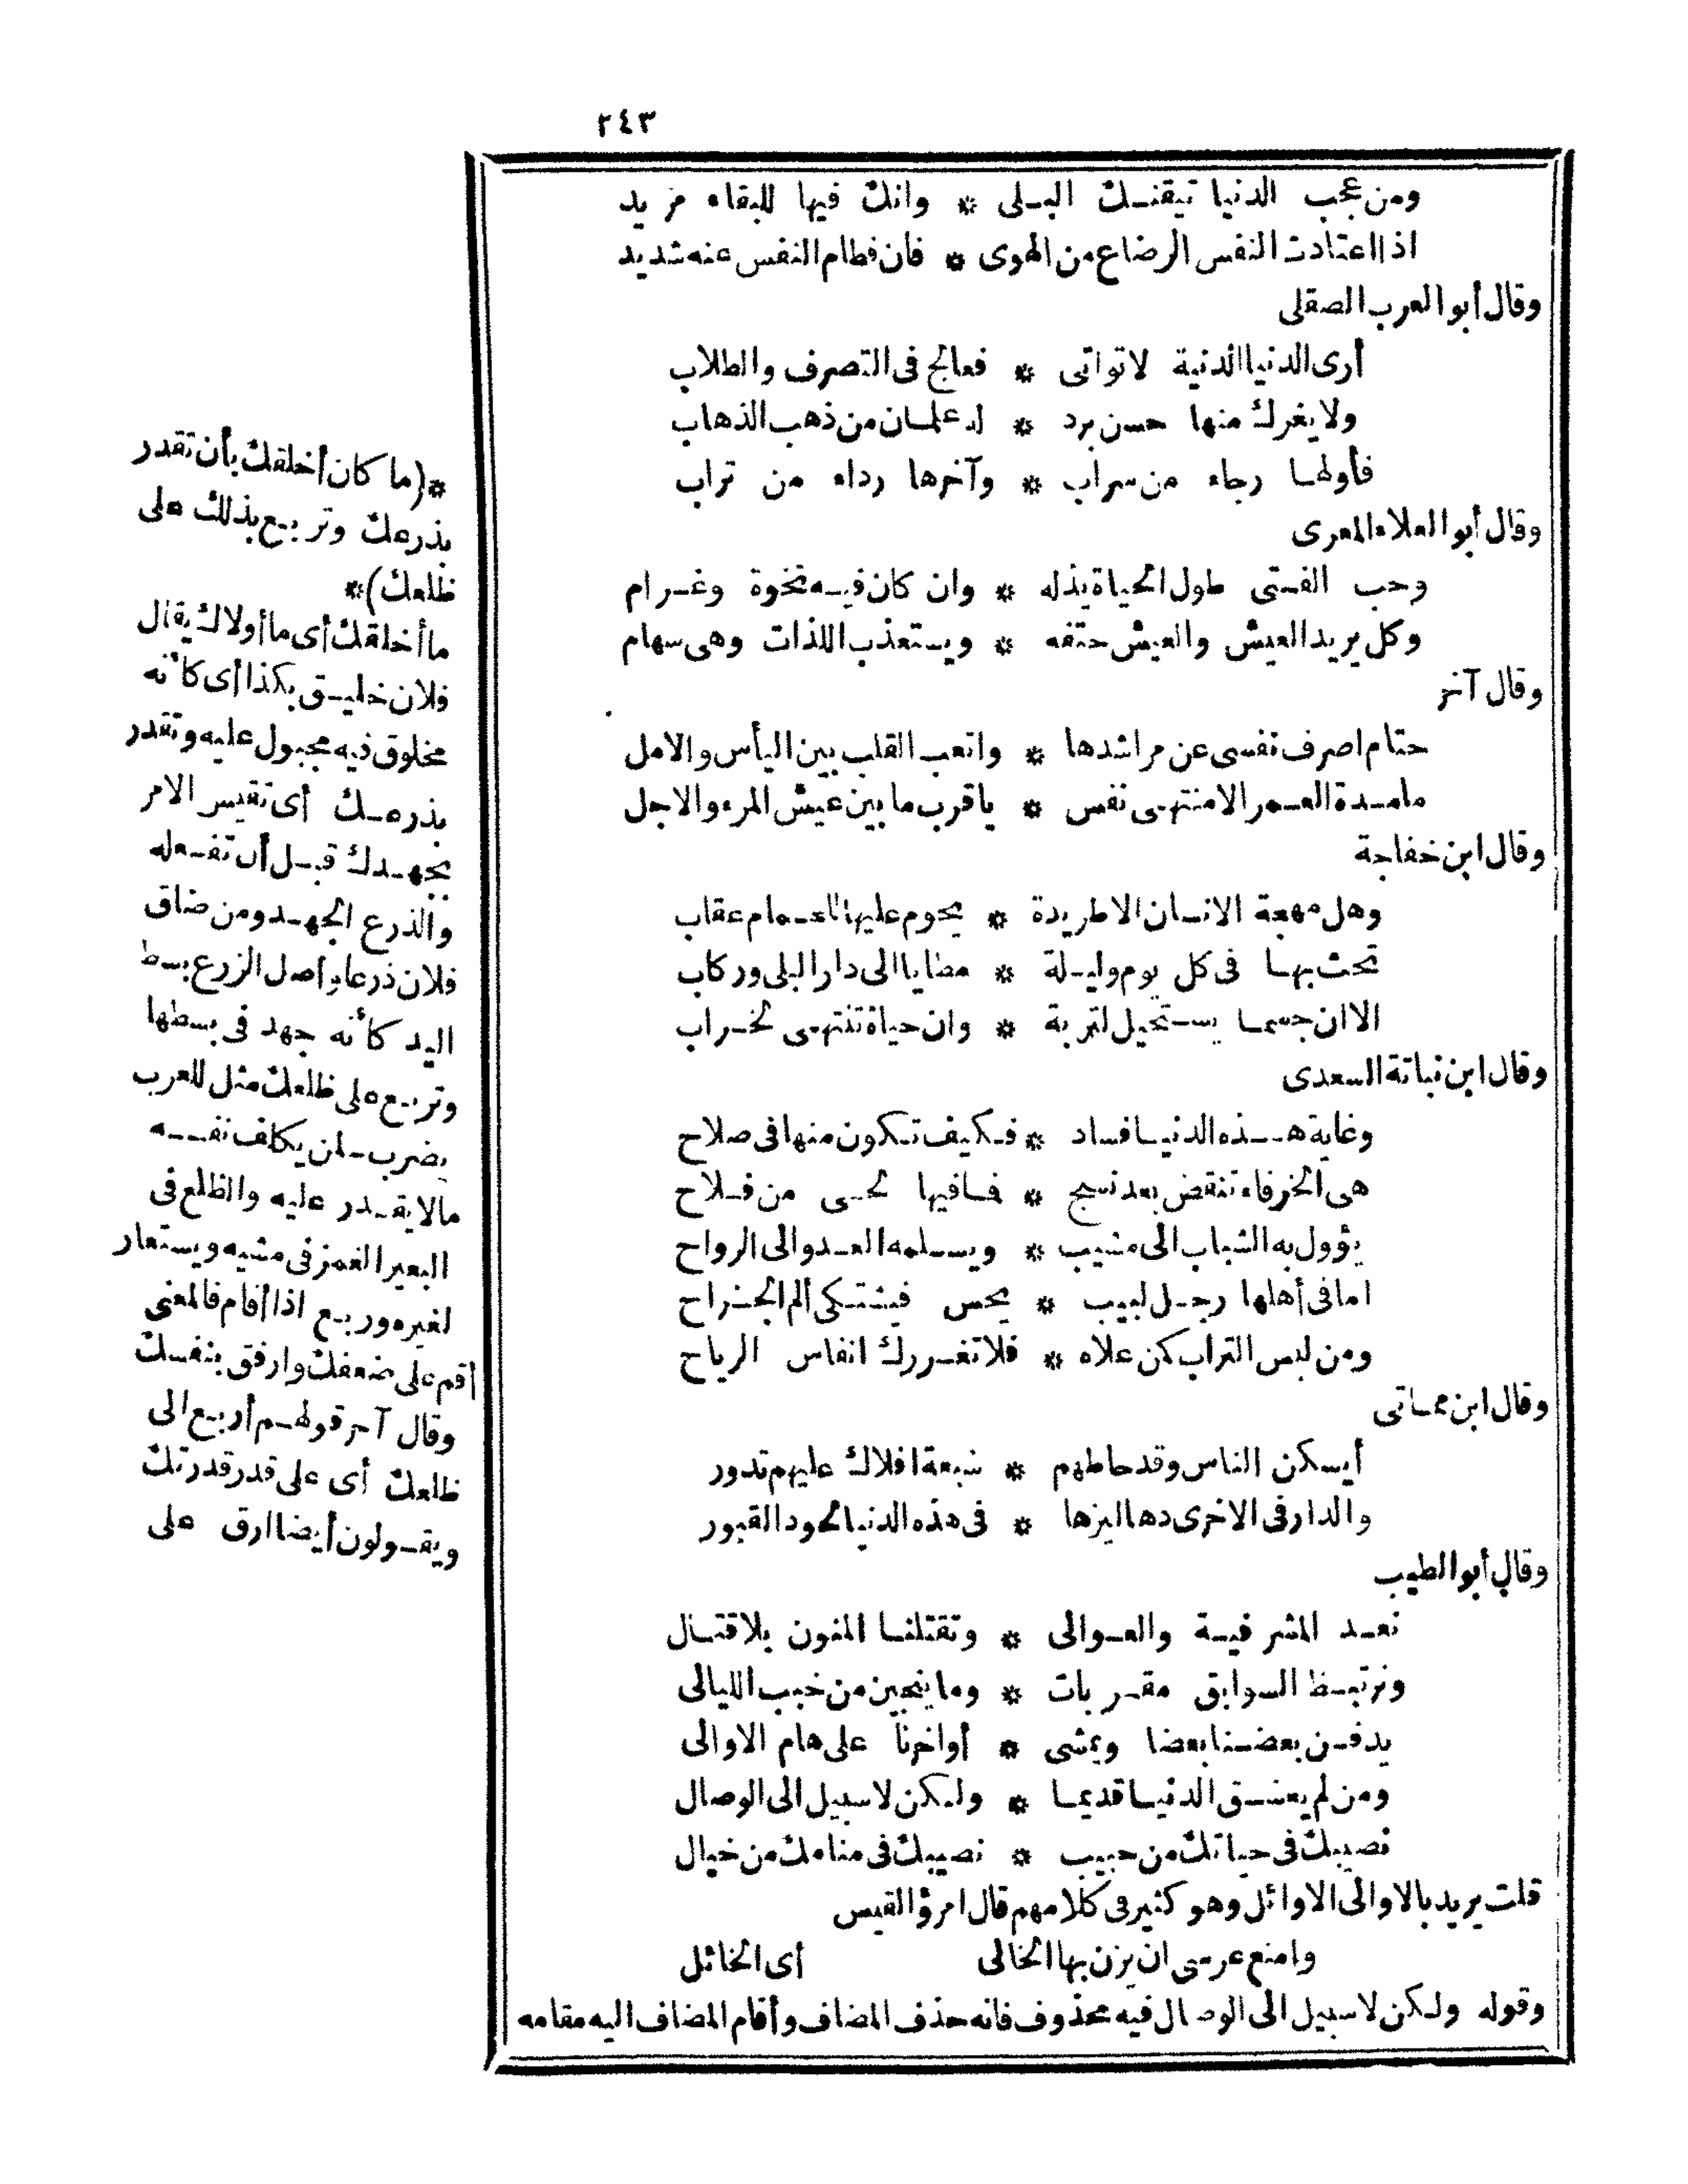 ٢٤٣
ومن عجب الدنيا تيقنك البلى * وانك فيها للبقاء مزيد
اذا اعتادت النفس الرضاع من الهوى * فان فطام النفس عنه شديد
وقال أبو العرب الصقلى
أرى الدنيا الدنية لا تواتى * فعالج فى التصرف والطلاب
ولا يغرك منها حسن برد * له علمان من ذهب الذهاب
فأولها رجاء من سراب * وآخرها رداء من تراب
وقال أبو العلاء المعرى
وحب الفتى طول الحياة يذله * وان كان فيه نخوة وغرام
وكل يريد العيش والعيش حتفه * ويستعذب اللذات وهى سهام
وقال آخر
حتام اصرف نفسى عن مراشدها * واتعب القلب بين اليأس والامل
مامدة العمر الا منتهى نفس * ياقرب ما بين عيش المرء والاجل
وقال ابن خفاجة
وهل مهجة الانسان الا طريدة * يحوم عليها للحمام عقاب
تحث بها فى كل يوم وليلة * مطايا الى دار البلى وركاب
الا ان جسما يستحيل لتربة * وان حياة تنتهى لخراب
وقال ابن نباتة السعدى
وغاية هذه الدنيا فساد * فكيف تكون منها فى صلاح
هى الخرقاء تنقض بعد نسج * فما فيها لحى من فلاح
يؤول به الشباب الى مشيب * ويسلمه الغدو الى الرواح
اما فى أهلها رجل لبيب * يحس فيشتكى ألم الجراح
ومن لبس التراب كمن علاه * فلا تغررك انفاس الرياح
وقال ابن مماتى
أيسكن الناس وقد حاطهم * سبعة افلاك عليهم تدور
والدار فى الاخرى دهاليزها * فى هذه الدنيا لحود القبور
وقال أبو الطيب
نعد المشرفية والعوالى * وتقتلنا المنون بلا قتال
ونرتبط السوابق مقربات * وما ينجين من خبب الليالى
يدفن بعضنا بعضا ويمشى * أواخرنا على هام الاوالى
ومن لم يعشق الدنيا قديما * ولكن لا سبيل الى الوصال
نصيبك فى حياتك من حبيب * نصيبك فى منامك من خيال
قلت يريد بالاوالى الاوائل وهو كثير فى كلامهم قال امرؤ القيس
وامنع عرسى ان يزن بها الخالى أى الخائل
وقوله ولكن لا سبيل الى الوصال فيه محذوف فانه حذف المضاف وأقام المضاف اليه مقامه
*(ما كان أخلقك بأن تقدر
بذرعك وتربع بذلك على
ظلعك)*
ما أخلقك أى ما أولاك يقال
فلان خليق بكذا أى كأنه
مخلوق فيه مجبول عليه وتقدر
بذرعك أى تقيس الامر
بجهدك قبل أن تفعله
والذرع الجهد ومن ضاق
فلان ذرعا وأصل الزرع بسط
اليد كأنه جهد فى بسطها
وتربع على ظلعك مثل للعرب
يضرب لمن يكلف نفسه
مالا يقدر عليه والظلع فى
البعير الغمز فى مشيه ويستعار
لغيره وربع اذا أقام فالمعنى
أقم على ضعفك وارفق بنفسك
وقال آخر قولهم أربع الى
ظلعك أى على قدر قدرتك
ويقولون أيضا ارق على